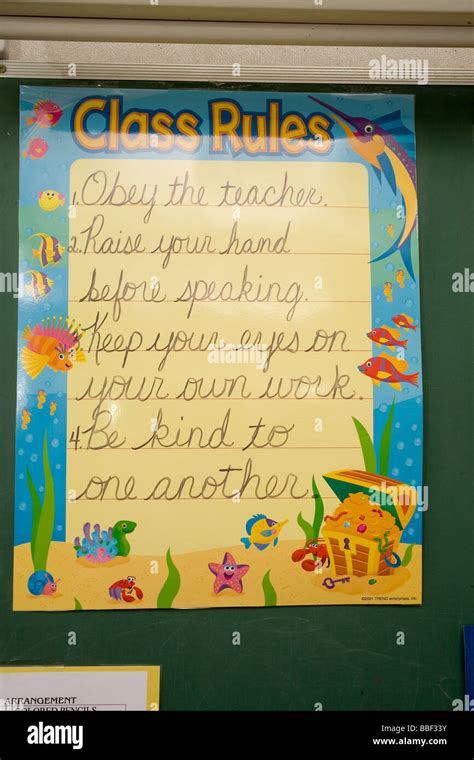 Class Rules
1. Obey the teacher.
2. Raise your hand
before speaking.
3. Keep your eyes on
your own work.
4. Be kind to
one another.
©2001 TREND enterprises, Inc.
ARRANGEMENT
COLORED PENCILS
alamy
Image ID: BBF33Y
www.alamy.com